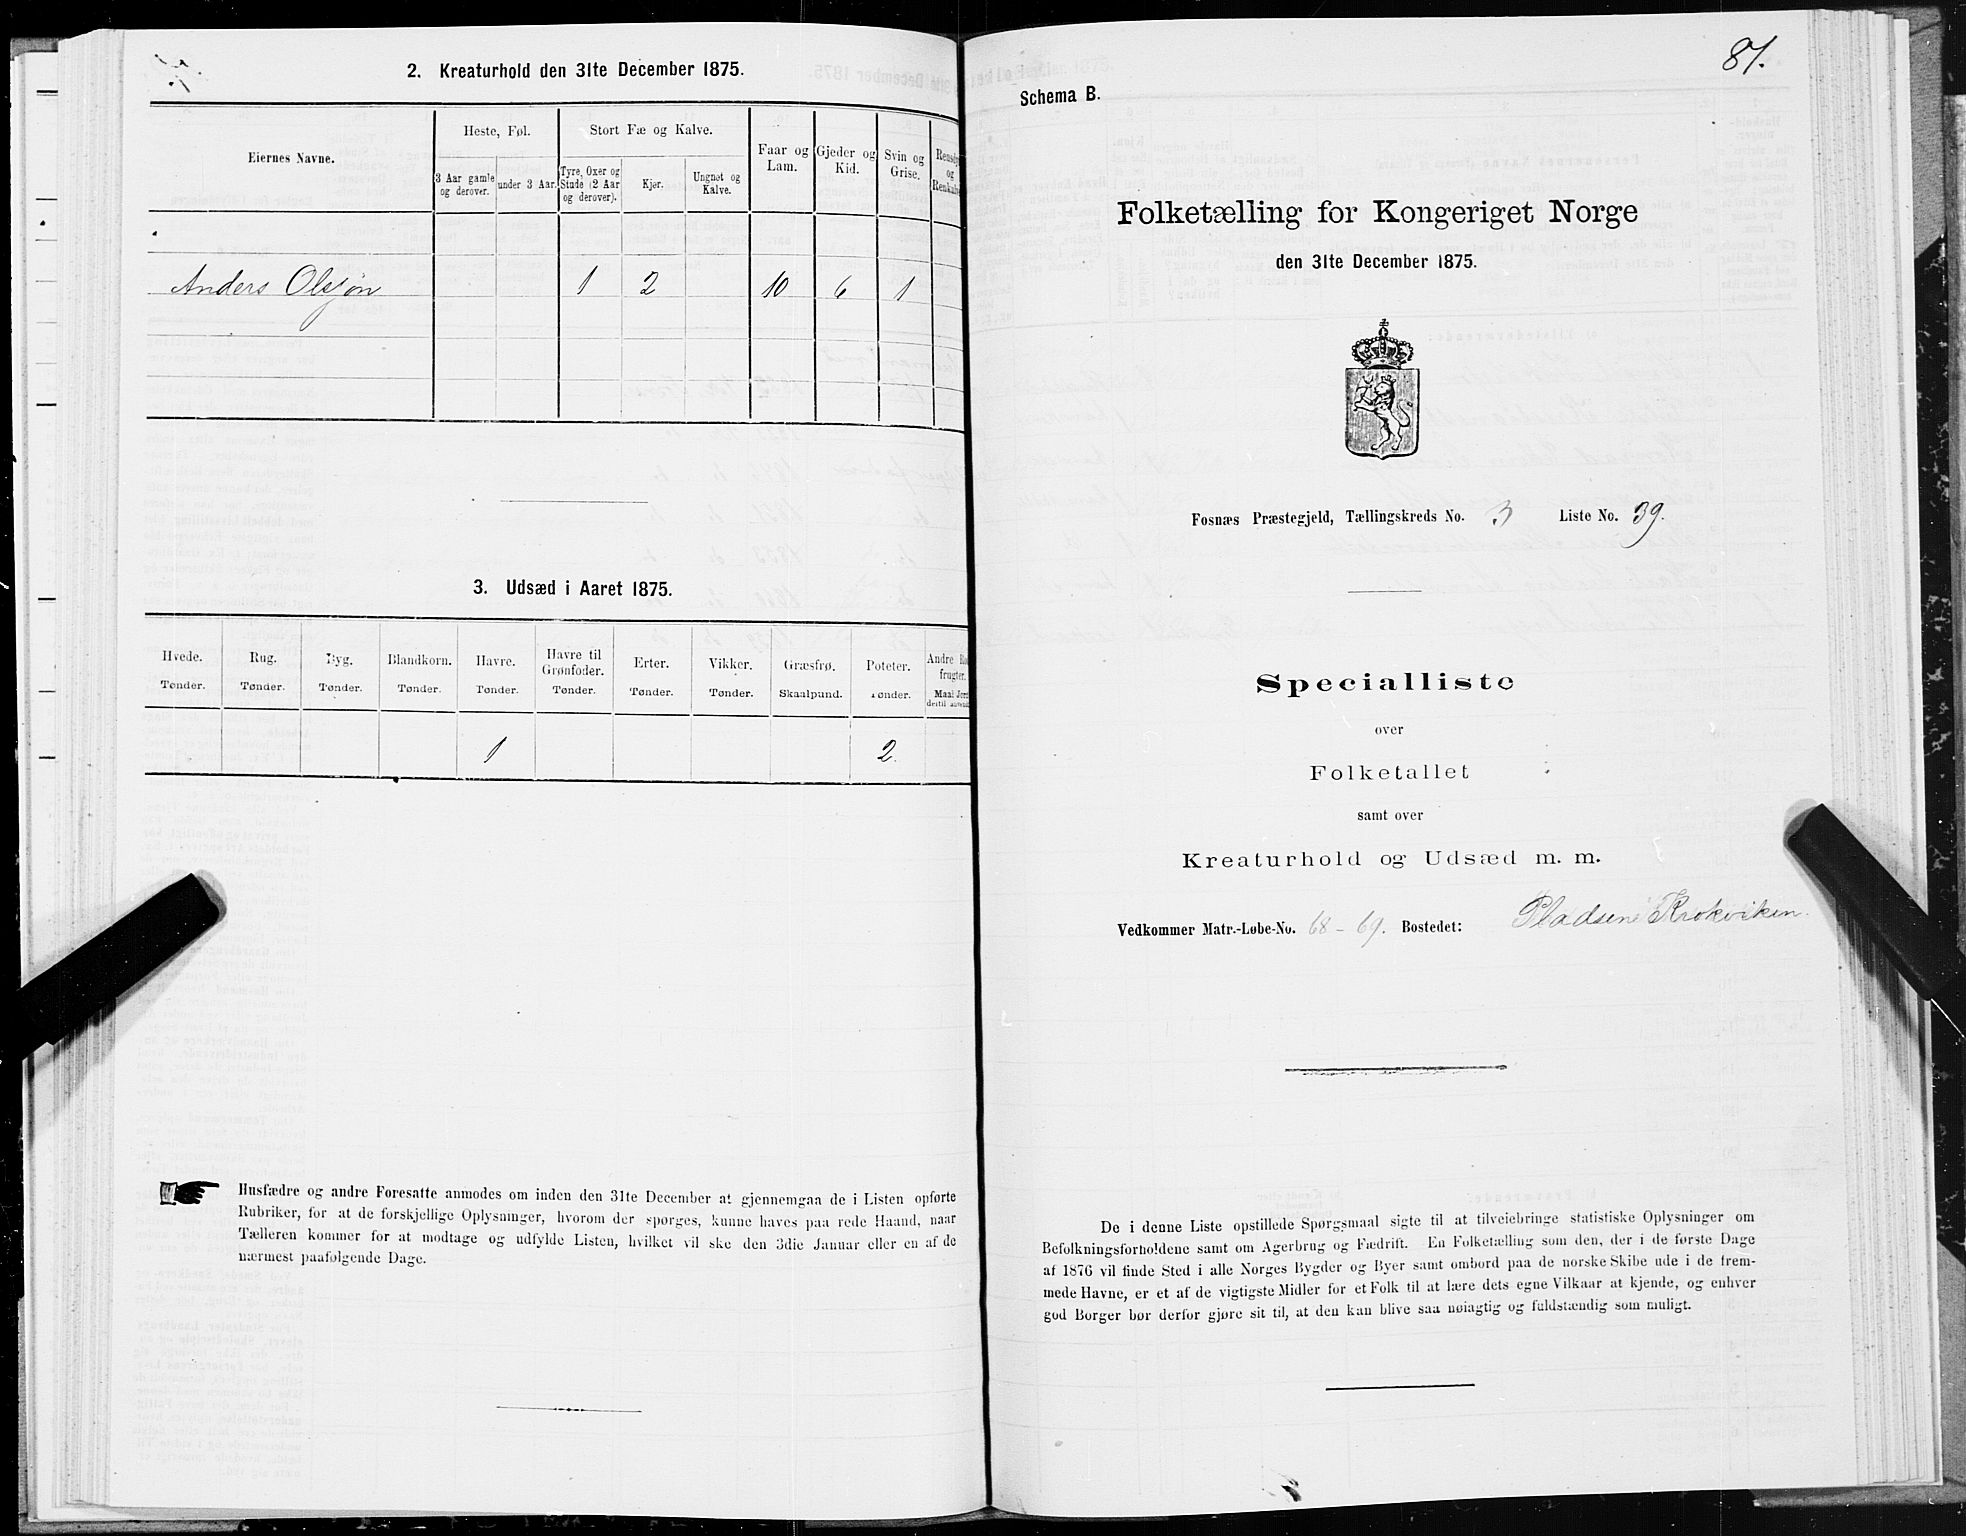 2. Kreaturhold den 31te December 1875.
Eiernes Navne.
Heste, Føl.
Stort Fæ og Kalve.
Faar og Lam.
Gjeder og Kid.
Svin og Grise.
3 Aar gamle og derover.
under 3 Aar.
Tyre, Oxer og Stude (2 Aar og derover).
Kjør.
Ungnøt og Kalve.
Anders Olsjøn 1 2 10 6 1
3. Udsæd i Aaret 1875.
Hvede. Rug. Byg. Blandkorn. Havre. Havre til Grønfoder. Erter. Vikker. Græsfrø. Poteter.
Tønder. Tønder. Tønder. Tønder. Tønder. Tønder. Tønder. Tønder. Skaalpund. Tønder.
1 2.
Husfædre og andre Foresatte anmodes om inden den 31te December at gjennemgaa de i Listen opførte
Rubriker, for at de forskjellige Oplysninger, hvorom der spørges, kunne haves paa rede Haand, naar
Tælleren kommer for at modtage og udfylde Listen, hvilket vil ske den 3die Januar eller en af de
nærmest paafølgende Dage.
81.
Schema B.
Folketælling for Kongeriget Norge
den 31te December 1875.
Fosnæs Præstegjeld, Tællingskreds No. 3 Liste No. 39.
Specialliste
over
Folketallet
samt over
Kreaturhold og Udsæd m. m.
Vedkommer Matr.-Løbe-No. 68-69. Bostedet: Pladsen Krokviken.
De i denne Liste opstillede Spørgsmaal sigte til at tilveiebringe statistiske Oplysninger om
Befolkningsforholdene samt om Agerbrug og Fædrift. En Folketælling som den, der i de første Dage
af 1876 vil finde Sted i alle Norges Bygder og Byer samt ombord paa de norske Skibe ude i de frem-
mede Havne, er et af de vigtigste Midler for et Folk til at lære dets egne Vilkaar at kjende, og enhver
god Borger bør derfor gjøre sit til, at den kan blive saa nøiagtig og fuldstændig som muligt.